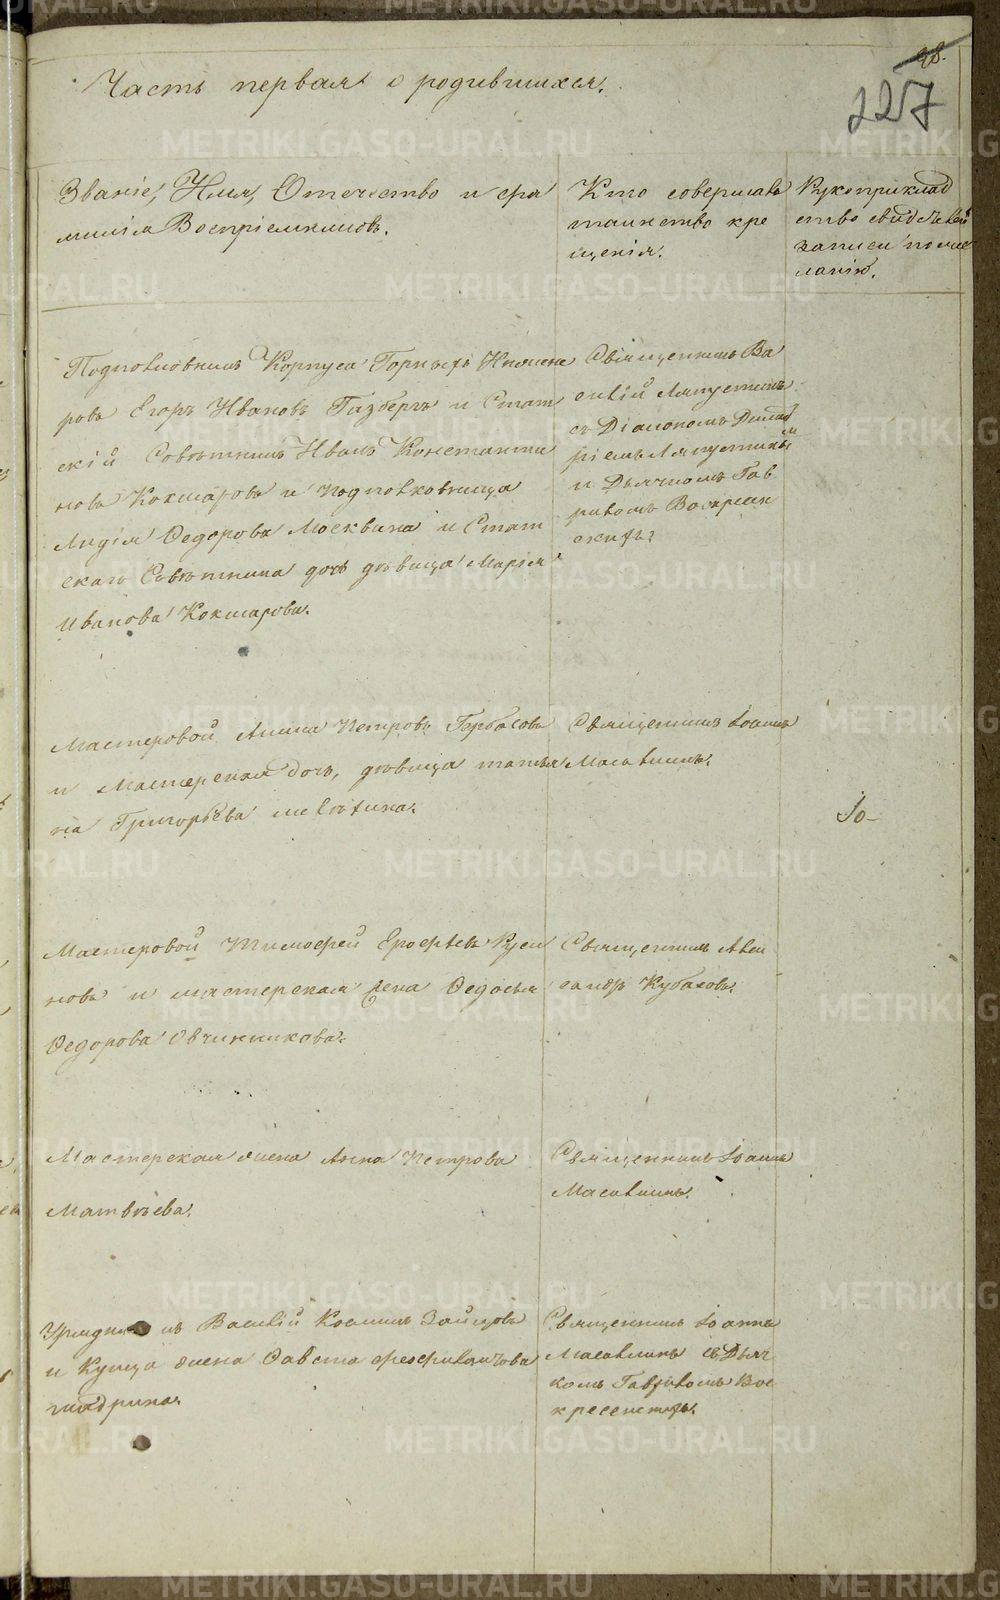 98.
227
Часть первая о родившихся.
Званіе, Имя, Отчество и фа
милія Воспріемниковъ.
Кто совершалъ
таинство кре
щенія.
Рукоприклад
ство свидѣтелей
записи по же
ланію.
Подполковникъ Корпуса Горныхъ Инжене
ровъ Егоръ Ивановъ Газбергъ и Стат
скій Совѣтникъ Иванъ Константи
новъ Кокшаровъ и подполковница
Лидія Ѳедорова Москвина и Стат
скаго Совѣтника дочь дѣвица Марія
Иванова Кокшарова.
Священникъ Ва
силій Ляпустинъ
съ Діакономъ
ріемъ Ляпустинымъ
и Дьячкомъ Гав
риломъ Воскресен
скимъ.
Мастеровой Петровъ Горбасовъ
и Мастерская дочь, дѣвица Татья
на Григорьева
Священникъ Іоаннъ
Масавкинъ.
Іо-
Мастеровой Тимофей Ерофѣевъ Руси
новъ и мастерская жена Ѳедосья
Ѳедорова Овчинникова.
Священникъ Алек
сандръ Кубасовъ.
Мастерская жена Анна Петрова
Матвѣева.
Священникъ Іоаннъ
Масавкинъ.
Урядникъ Василій Козминъ Зайцовъ
и Купца жена Савста
шадрина.
Священникъ Іоаннъ
Масавкинъ съ Дьяч
комъ Гавриломъ Вос
кресенскимъ.
METRIKI.GASO-URAL.RU